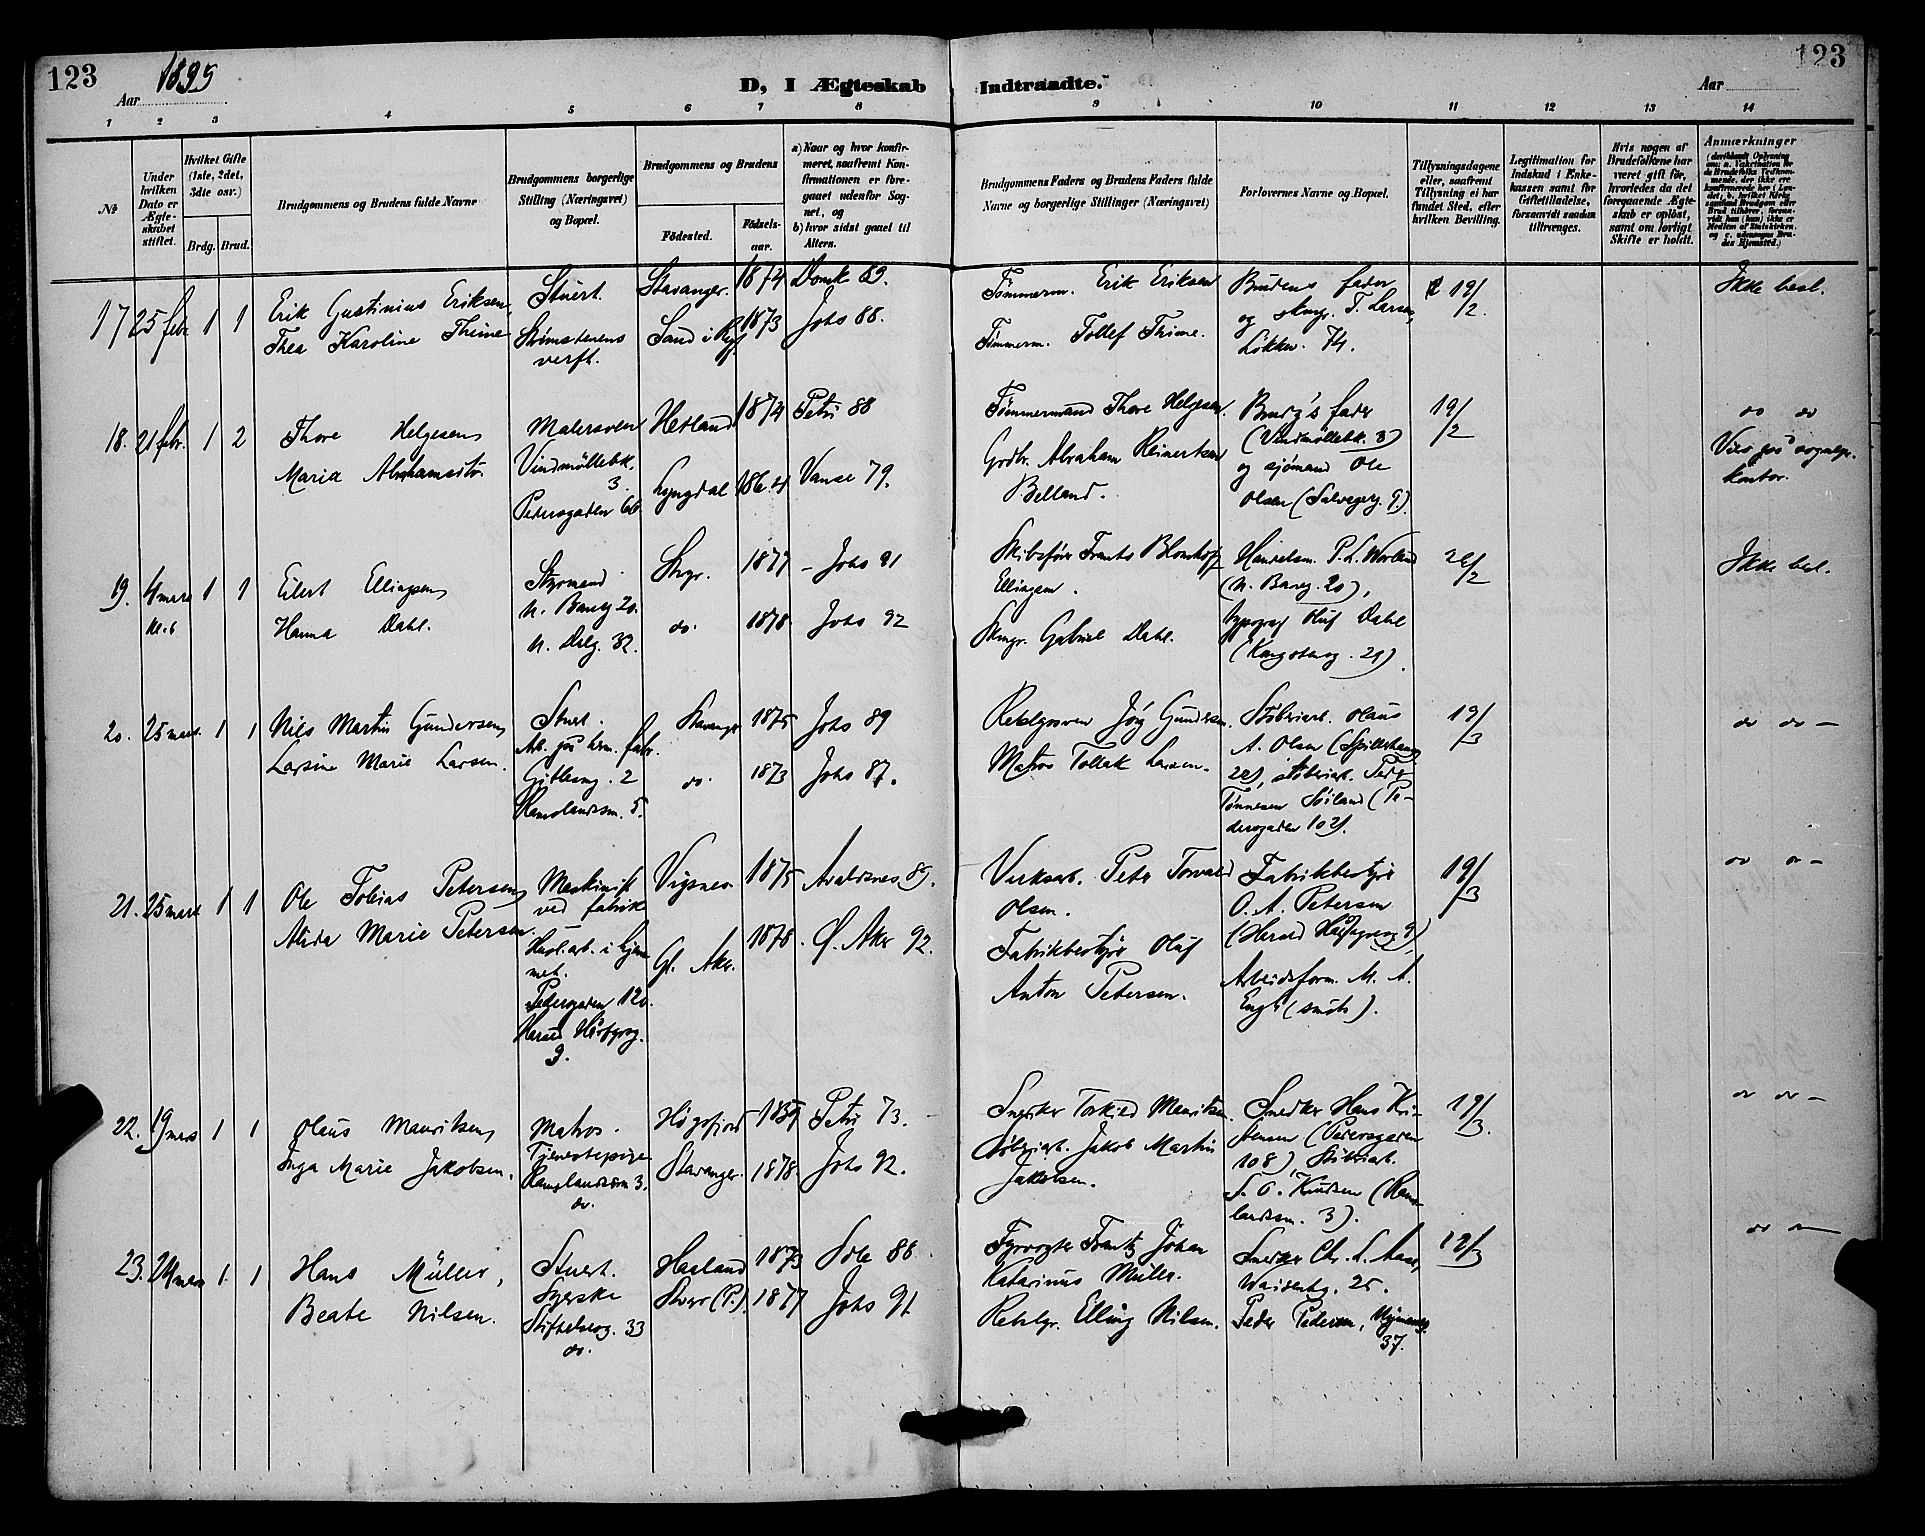 123
Aar 1899
D, I Ægteskab Indtraadte.
Aar
123
1 2 3 4 5 6 7 8 9 10 11 12 13 14
№
Under hvilken Dato er Ægteskabet stiftet.
Hvilket Gifte (1ste, 2det, 3die osv.)
Brdg. Brud.
Brudgommens og Brudens fulde Navne
Brudgommens borgerlige Stilling (Næringsvei) og Bopæl.
Brudgommens og Brudens
Fødested.
Fødsels-aar.
a) Naar og hvor konfirmeret, saafremt Konfirmationen er foregaaet udenfor Sognet, og
b) hvor sidst gaaet til Alters.
Brudgommens Faders og Brudens Faders fulde Navne og borgerlige Stillinger (Næringsvei)
Forlovernes Navne og Bopæl.
Tillysningsdagene eller, saafremt Tillysning ei har fundet Sted, efter hvilken Bevilling.
Legitimation for Indskud i Enkekassen samt for Giftetilladelse, forsaavidt saadan tiltrænges.
Hvis nogen af Brudefolkene har været gift før, hvorledes da det foregaaende Ægteskab er opløst, samt om lovligt Skifte er holdt.
Anmærkninger
17 25 febr 1 1
Erik Gustinius Eriksen,
Thea Karoline Thime
Stuert.
Strømstenens
verft.
Stavanger. 1874 Domk 89.
Sand i Ryf. 1873 Johs 88.
Tømmerm. Erik Eriksen
Tømmerm. Tollef Thime.
Brudens fader
og skmgr. T. Larsen,
Løkkev. 74.
19/2
Ikke besl.
18. 21 febr. 1 2
Thore Helgesen
Maria Abrahamsdtr.
Malersvend
Vindmøllebk.
3.
Pedersgaden 66
Hetland 1874 Petri 88
Lyngdal 1864 Vanse 79.
Tømmermand Thore Helgesen.
Grdbr. Abraham Reinertsen
Belland.
Brudg's fader
(Vindmøllebk. 3)
og sjømand Ole
Olsen (Salvagerg. 9.)
19/2
do do
Viet på sognepr.
kontor.
19. 4 mars 1 1
kl. 6
Eilert Ellingsen
Hanna Dahl.
Styrmand
N. Baneg 20.
N. Dalg. 32.
Stvgr. 1877 – Johs 91
do. 1878. Johs 92
Skibsfører Frants Blomkop
Ellingsen.
Skmgr. Gabriel Dahl.
Handelsm. P. L. Worland
(N. Baneg. 20),
typograf Oluf Dahl
(Kongsteng. 21).
26/2
Ikke besl.
20. 25 mars. 1 1
Nils Martin Gundersen
Larsine Marie Larsen.
Stuert.
Arb. på hrm. fabr.
Gjitleveg. 2
Ramslandsm. 5.
Stavanger 1875 Johs 89
do. 1873 Johs 87.
Rebslgsvend Jörg Gundersen.
Matros Tollak Larsen.
Støberiarb. Olaus
A. Olsen (Spilderhaug
22), støberiarb. Peder
Tønnesen Søiland (Pe-
dersgaden 102).
19/3
do do –
21. 25 mars 1 1
Ole Tobias Petersen
Alida Marie Petersen.
Maskinist
ved fabrik
Husl. arb. i hjem
met.
Pedersgaden 120.
Harald Hårfgrsg.
9.
Vigsnes 1875 Avaldsnes 89.
Gl. Aker. 1878. Ø. Aker 92.
Verksarb. Peter Torvald
Olsen.
Fabrikbestyrer Oluf
Anton Petersen.
Fabrikbestyrer
O. A. Petersen
(Harald Hårfagresg 9)
Arbeidsform. M. A.
Enge (smsts).
19/3
do do –
22. 19 mars 1 1
Olaus Mauritsen
Inga Marie Jakobsen.
Matros.
Tjenestepige
Ramslandsm 3.
do.
Høgsfjord 1859 Petri 73.
Stavanger. 1878. Johs 92.
Snedker Torkild Mauritsen.
Støberiarb. Jakob Martin
Jakobsen.
Snedker Hans Kri-
stensen (Pedersgaden
108), Støberiarb.
S. O. Knudsen (Rams-
landsm. 3).
19/3.
do do –
23. 24 mars 1. 1
Hans Müller,
Beate Nilsen.
Stuert.
Syerske
Stiftelsesg. 33
do.
Haaland 1873 Sole 88.
Stvgr (P.). 1877 Johs 91.
Fyrvogter Frantz Johan
Katarinus Müller.
Rebslgr. Elling Nilsen.
Snedker Chr. L. Aase,
Waisenhg. 25.
Peder Pedersen,
37.
12/3
do –